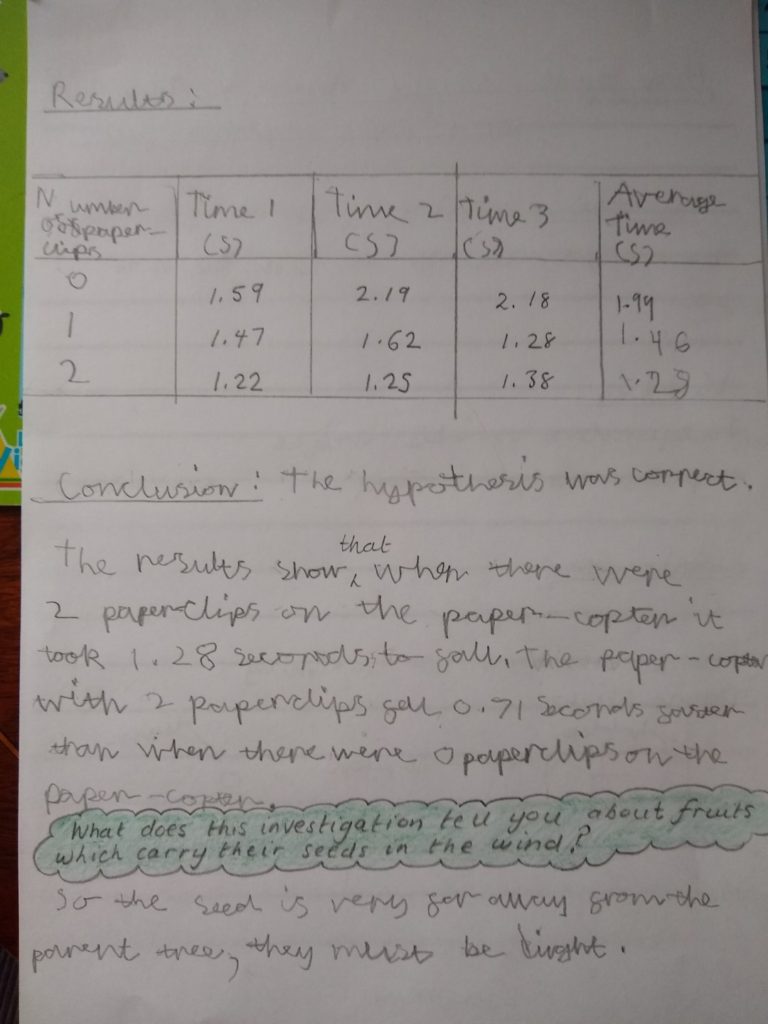 Results:
Number of paper-clips Time 1 (S) Time 2 (S) Time 3 (S) Average Time (S)
0 1.59 2.19 2.18 1.99
1 1.47 1.62 1.28 1.46
2 1.22 1.25 1.38 1.28
Conclusion: The hypothesis was correct.
The results show that when there were
2 paperclips on the paper-copter it
took 1.28 seconds to fall. The paper-copter
with 2 paperclips fell 0.71 seconds faster
than when there were 0 paperclips on the
paper-copter.
What does this investigation tell you about fruits
which carry their seeds in the wind?
So the seed is very far away from the
parent tree, they must be light.